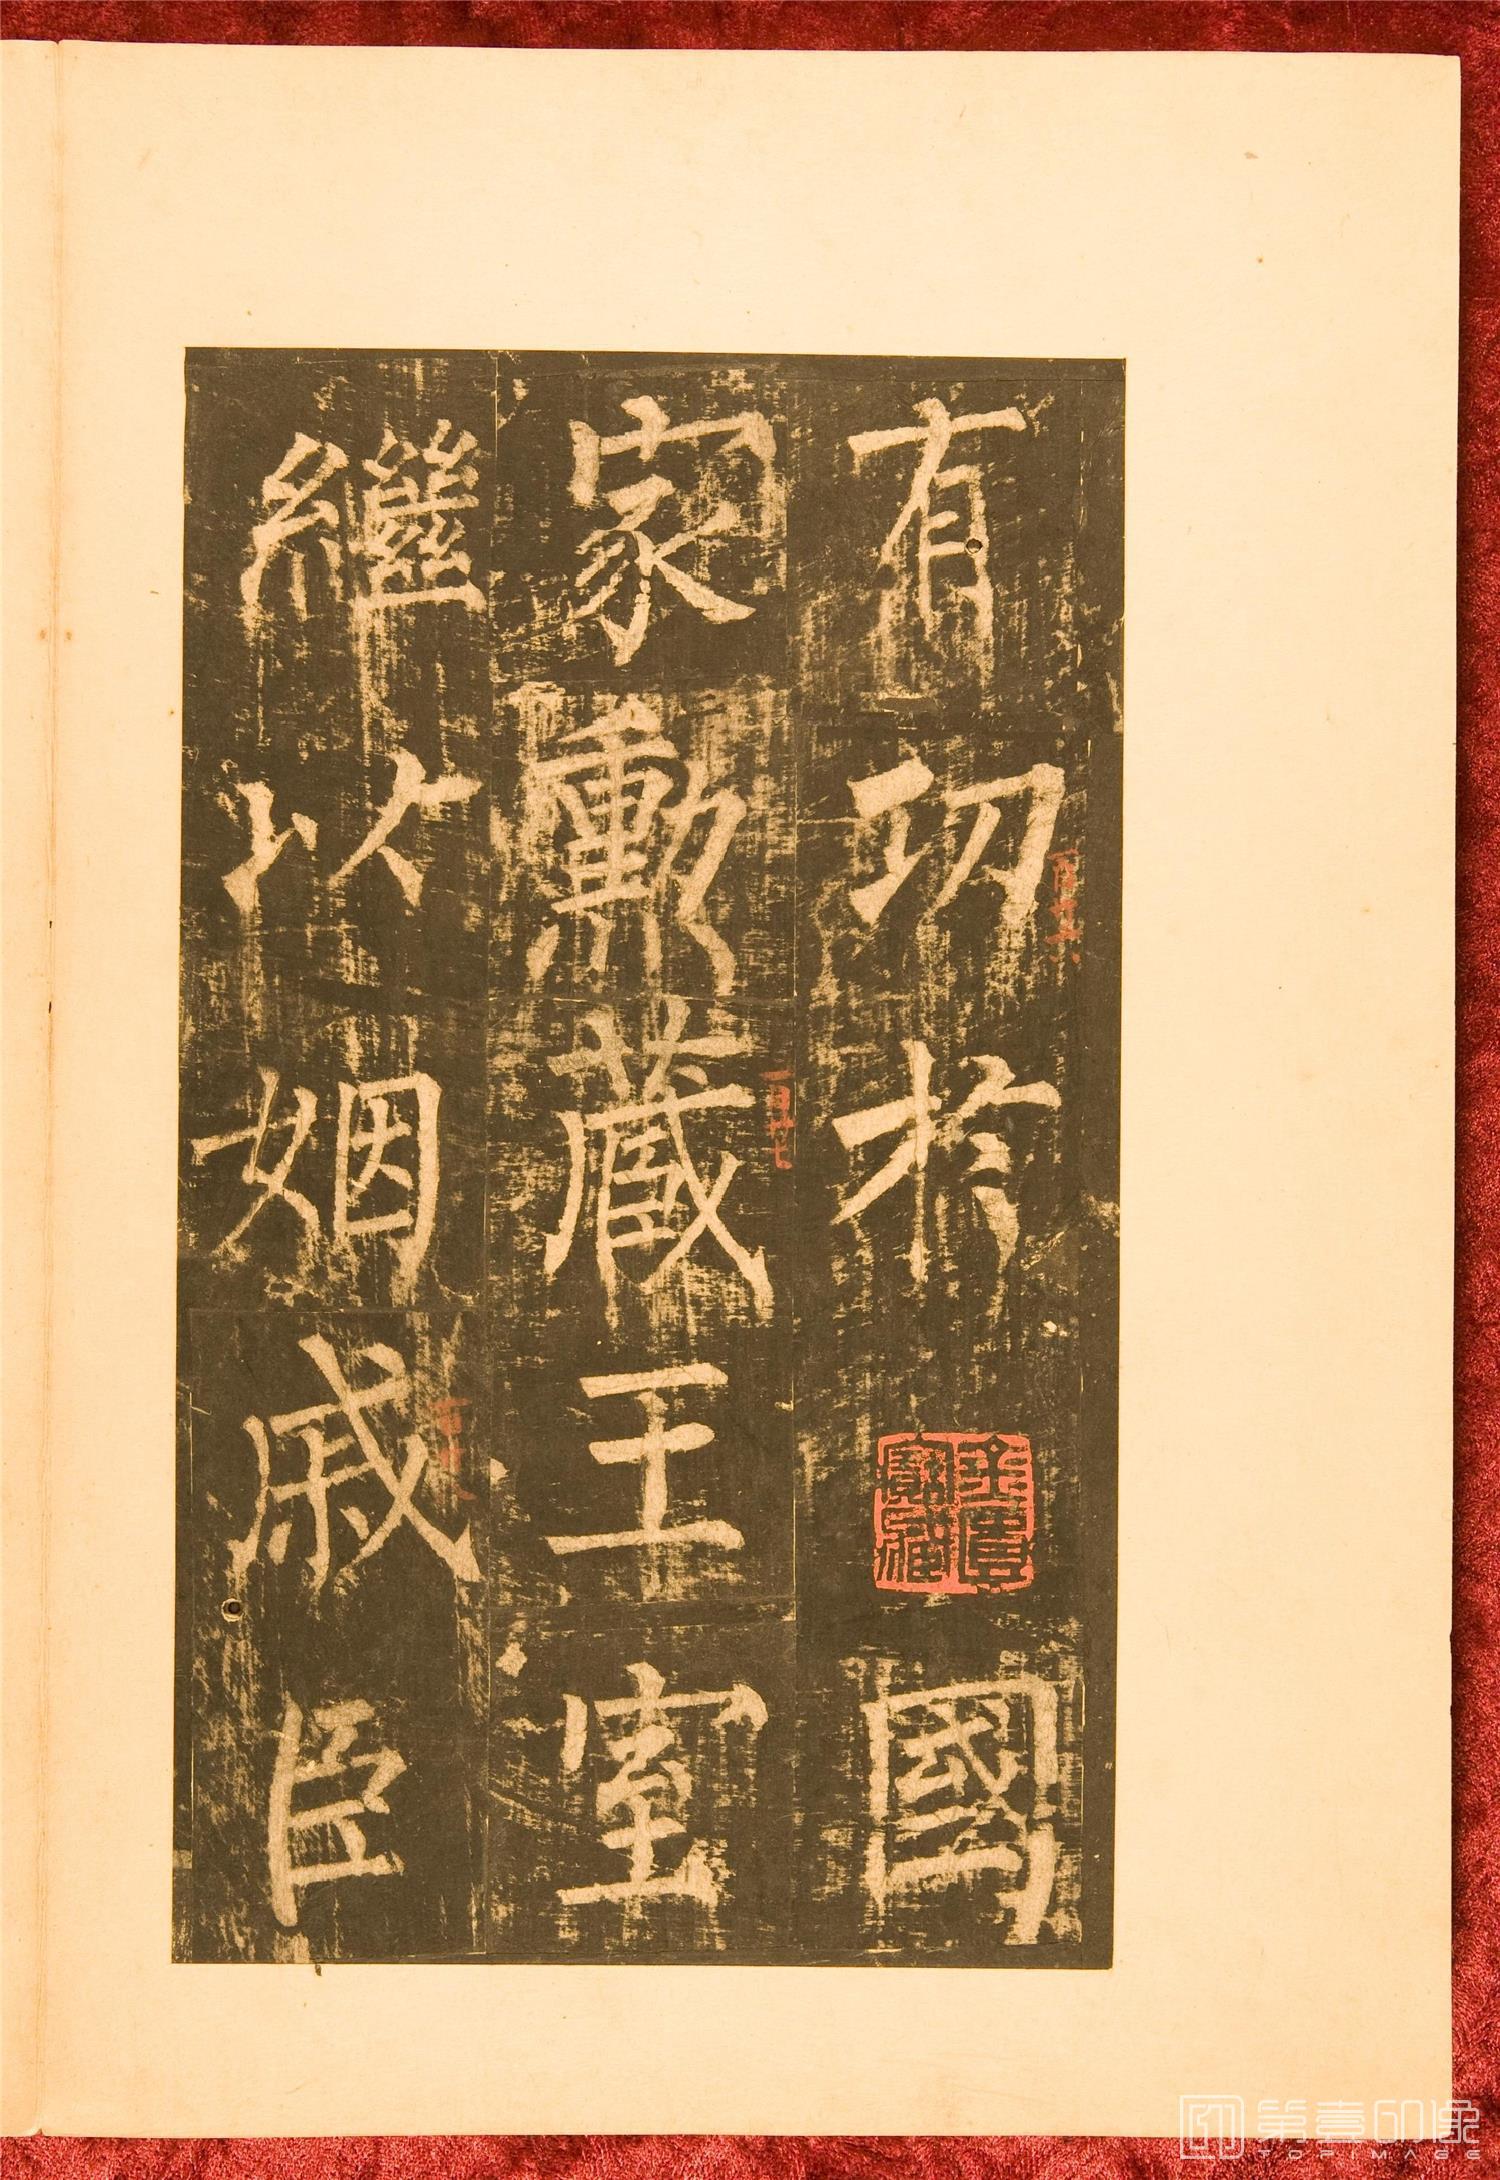 有功於國
家勳藏王室
繼以姻戚臣
第壹印像
TOPIMAGE